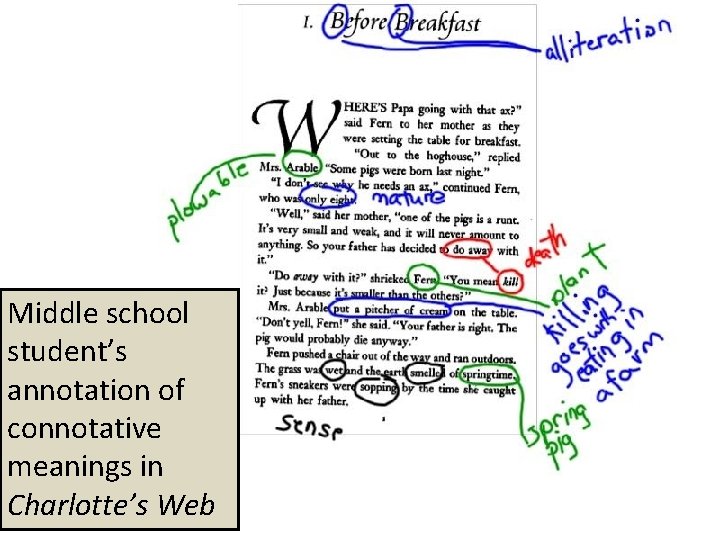 I. Before Breakfast
alliteration
WHERE'S Papa going with that ax?"
said Fern to her mother as they
were setting the table for breakfast.
"Out to the hoghouse," replied
Mrs. Arable. "Some pigs were born last night."
"I don't see why he needs an ax," continued Fern,
who was only eight.
"Well," said her mother, "one of the pigs is a runt.
It's very small and weak, and it will never amount to
anything. So your father has decided to do away with
it."
"Do away with it?" shrieked Fern. "You mean kill
it? Just because it's smaller than the others?"
Mrs. Arable put a pitcher of cream on the table.
"Don't yell, Fern!" she said. "Your father is right. The
pig would probably die anyway."
Fern pushed a chair out of the way and ran outdoors.
The grass was wet and the earth smelled of springtime.
Fern's sneakers were sopping by the time she caught
up with her father.
plowable
nature
death
plant
killing
goes with
eating in
a farm
spring
pig
sense
Middle school
student's
annotation of
connotative
meanings in
Charlotte's Web